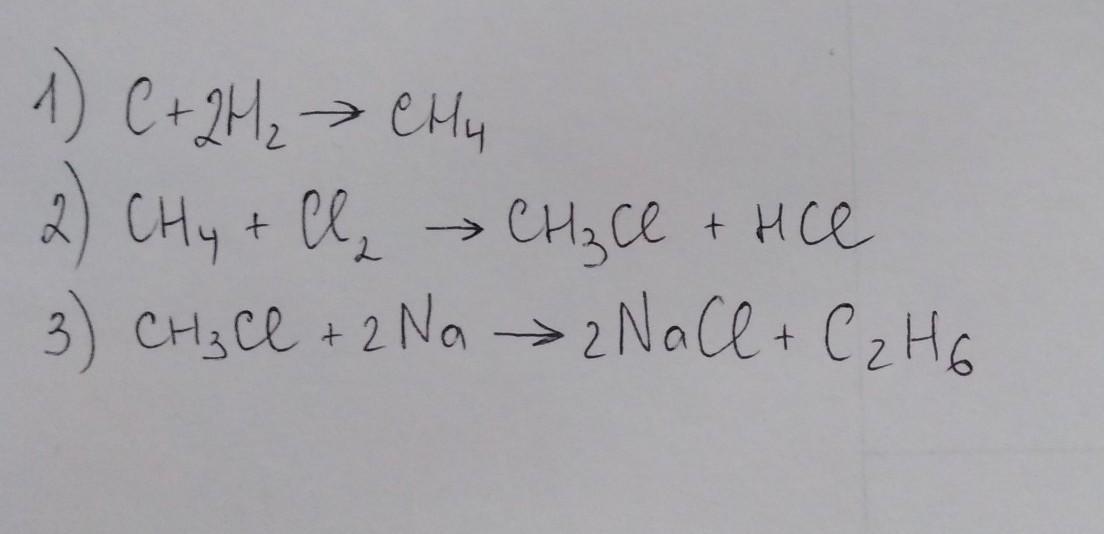 1) C+2H₂ → CH₄
2) CH₄ + Cl₂ → CH₃Cl + HCl
3) CH₃Cl + 2Na → 2NaCl + C₂H₆